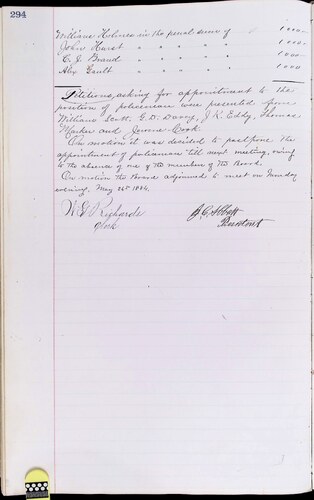 294
William Holmes in the penal sum of 1000—
John Hurst " " " " 1000—
C. J. Brand " " " " 1000—
Alex Gault " " " " 1000
Petitions, asking for appointment to the
position of policeman were presented from
William Scott, G. D. J. K. Thomas
and Cook.
On motion it was decided to postpone the
appointment of policeman till next meeting, owing
to the absence of one of the members of the Board.
On motion the Board adjourned to meet on Tuesday
evening, May 1884.
W. G. Richards J. C. Abbott
Clerk President